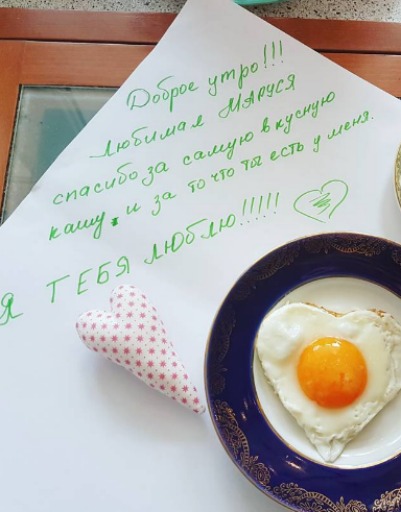 Доброе утро!!!
Любимая Маруся
спасибо за самую вкусную
кашу, и за то что ты есть у меня.
Я ТЕБЯ ЛЮБЛЮ!!!!!